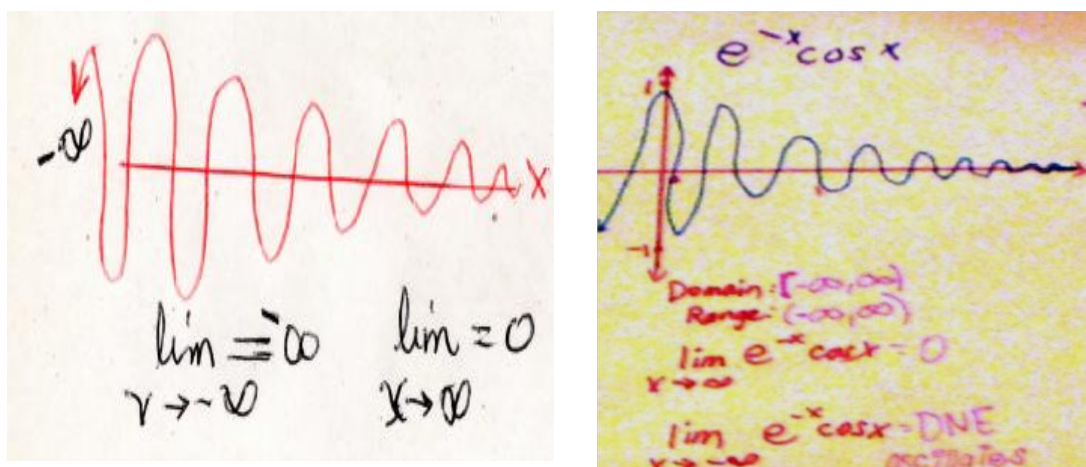 -∞
X
lim = -∞
x → -∞
lim = 0
x → ∞
e⁻ˣ cos x
1
-1
Domain: [-∞,∞)
Range: (-∞,∞)
lim e⁻ˣ cosx = 0
x → ∞
lim e⁻ˣ cosx = DNE
x → -∞ oscillates